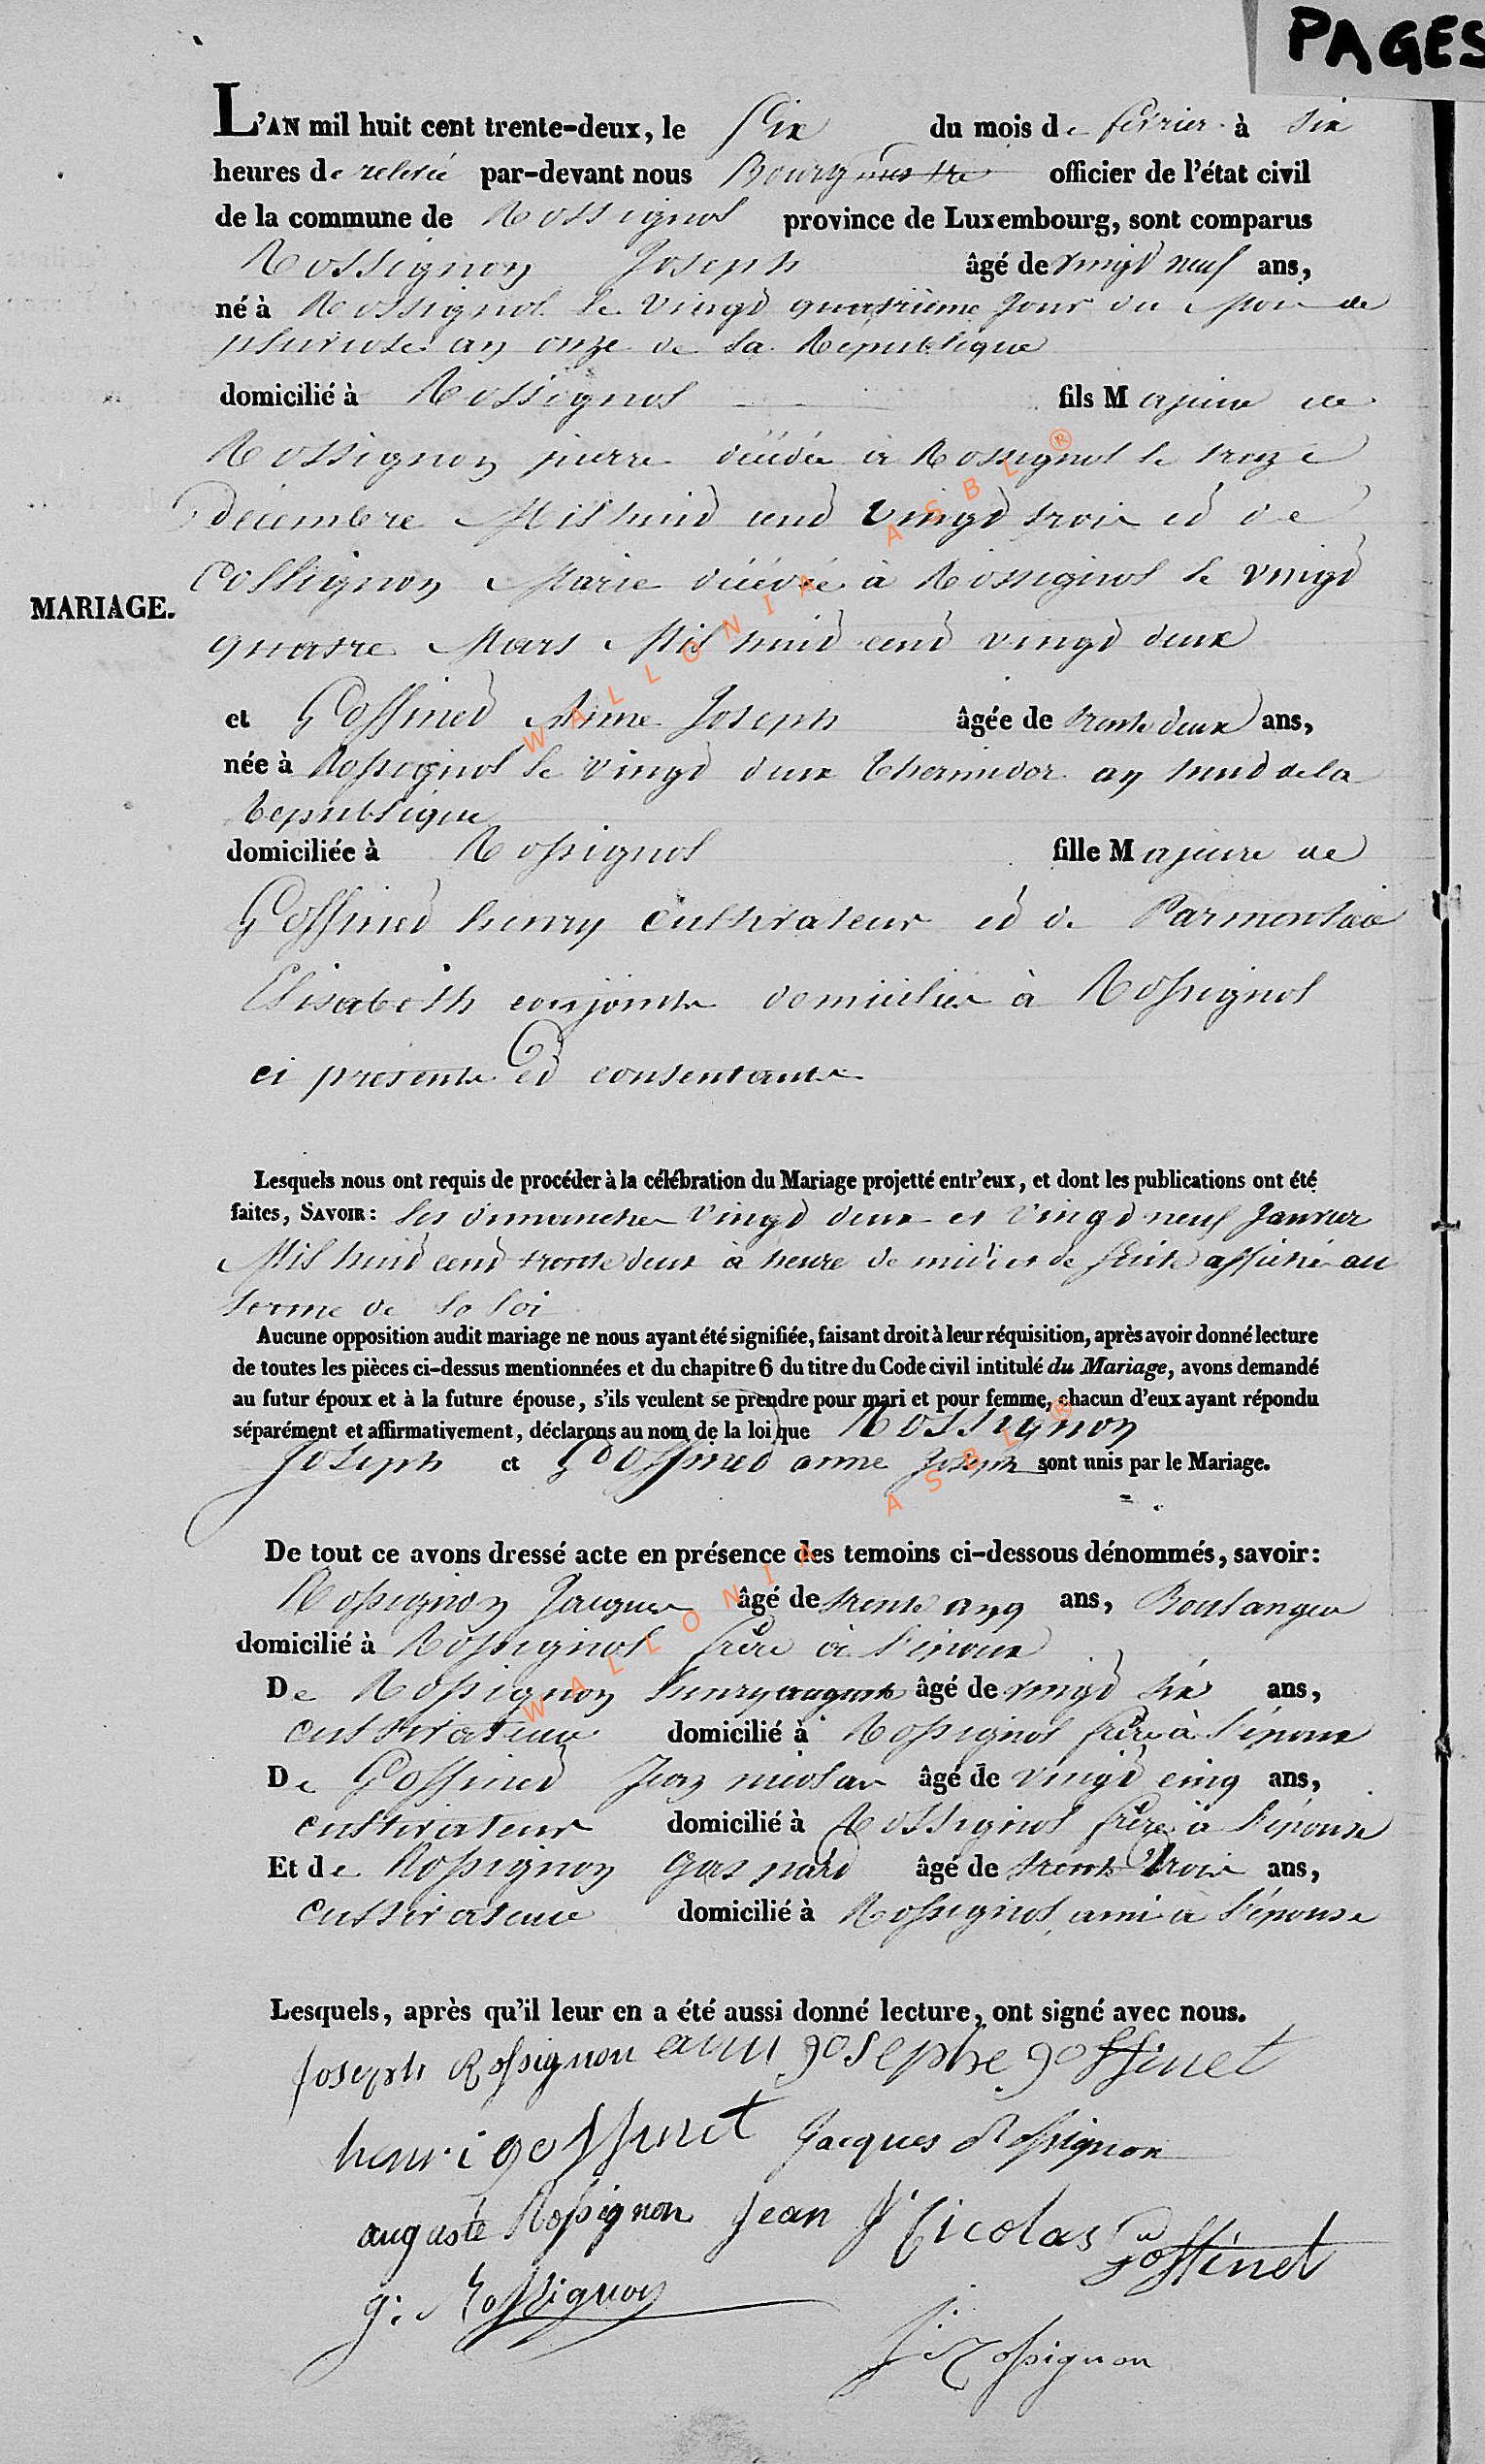 PAGES
L'AN mil huit cent trente-deux, le Six du mois de février à six
heures de relevée par-devant nous Bourgmestre officier de l'état civil
de la commune de Rossignol province de Luxembourg, sont comparus
Rossignon Joseph âgé de vingt neuf ans,
né à Rossignol le vingt quatrième jour du Mois de
pluviose an onze de la Republique
domicilié à Rossignol fils Majeur de
Rossignon pierre décédé à Rossignol le treize
décembre Mil huit cent vingt trois et de
Collignon Marie décédée à Rossignol le vingt
MARIAGE.
quatre Mars Mil huit cent vingt deux
et Goffinet Anne Joseph âgée de trente deux ans,
née à Rossignol le vingt deux thermidor an huit de la
Republique
domiciliée à Rossignol fille Majeure de
Goffinet henry cultivateur et de Parmentier
Elisabeth conjoints domiciliés à Rossignol
ci présents et consentants
Lesquels nous ont requis de procéder à la célébration du Mariage projetté entr'eux, et dont les publications ont été
faites, SAVOIR: les dimanches vingt deux et vingt neuf Janvier
Mil huit cent trente deux à heure de midi et de suite affiché au
terme de la loi
Aucune opposition audit mariage ne nous ayant été signifiée, faisant droit à leur réquisition, après avoir donné lecture
de toutes les pièces ci-dessus mentionnées et du chapitre 6 du titre du Code civil intitulé du Mariage, avons demandé
au futur époux et à la future épouse, s'ils veulent se prendre pour mari et pour femme, chacun d'eux ayant répondu
séparément et affirmativement, déclarons au nom de la loi que Rossignon
Joseph et Goffinet anne Joseph sont unis par le Mariage.
De tout ce avons dressé acte en présence des temoins ci-dessous dénommés, savoir:
Rossignon Jacques âgé de trente cinq ans, Boulanger
domicilié à Rossignol frère à l'époux
De Rossignon henry auguste âgé de vingt six ans,
cultivateur domicilié à Rossignol frère à l'époux
De Goffinet Jean nicolas âgé de vingt cinq ans,
cultivateur domicilié à Rossignol frère à l'épouse
Et de Rossignon Gaspard âgé de trente trois ans,
cultivateur domicilié à Rossignol ami à l'épouse
Lesquels, après qu'il leur en a été aussi donné lecture, ont signé avec nous.
Joseph Rossignon anne josephe goffinet
henri goffinet Jacques Rossignon
auguste Rossignon Jean Nicolas goffinet
g: Rossignon
J: Rossignon
WALLONIA ASBL ®
WALLONIA ASBL ®